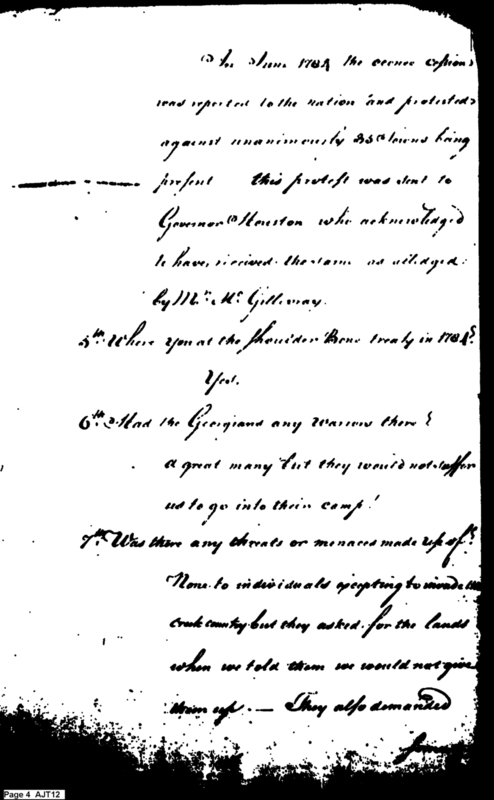 In June 1784 the ocones cession
was reported to the nation and protested
against unanimously 33 towns being
present this protest was sent to
Governor Houston who acknowledged
to have received the same as alledged
by Mr. Mc Gillivray.
5th. Where you at the Shoulder Bone treaty in 178
Yes.
6th. Had the Georgians any warriors there?
a great many but they would not suffer
us to go into their camp!
7th. Was there any threats or menaces made use of?
None to individuals excepting to invade the
Creek country but they asked for the lands
when we told them we would not give
them up. — They also demanded
Page 4 AJT12